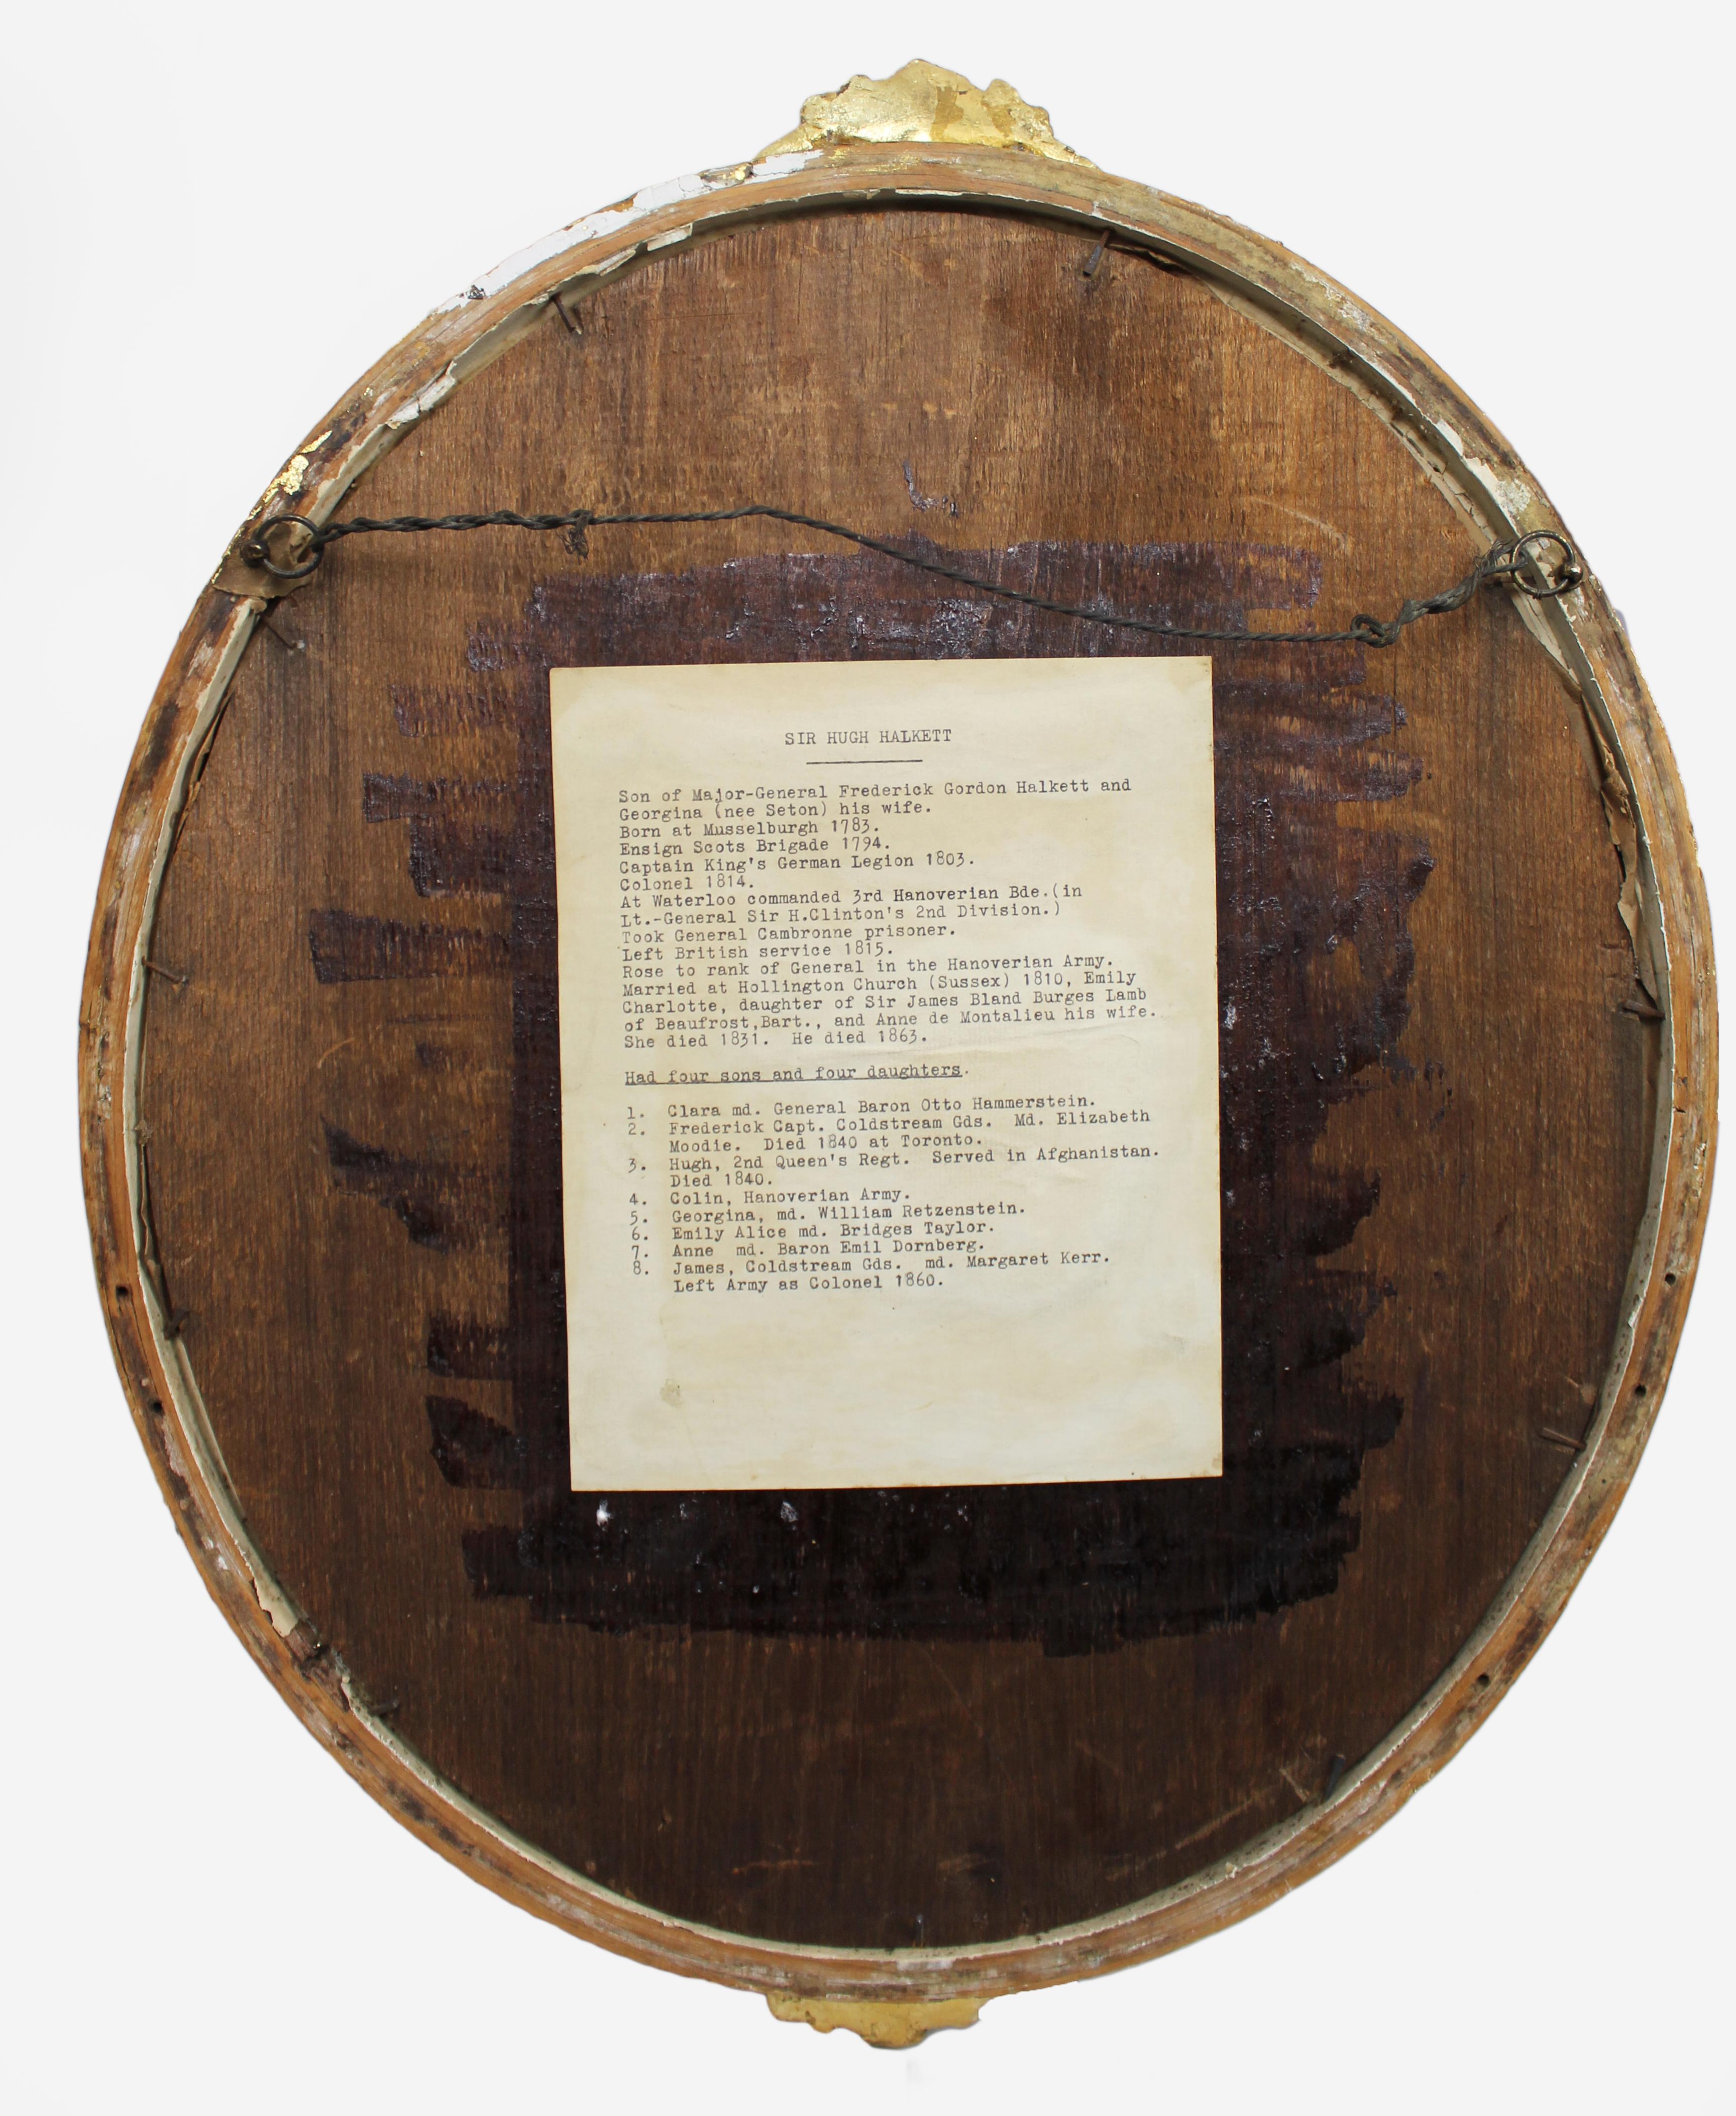 SIR HUGH HALKETT
Son of Major-General Frederick Gordon Halkett and
Georgina (nee Seton) his wife.
Born at Musselburgh 1783.
Ensign Scots Brigade 1794.
Captain King's German Legion 1803.
Colonel 1814.
At Waterloo commanded 3rd Hanoverian Bde.(in
Lt.-General Sir H.Clinton's 2nd Division.)
Took General Cambronne prisoner.
Left British service 1815.
Rose to rank of General in the Hanoverian Army.
Married at Hollington Church (Sussex) 1810, Emily
Charlotte, daughter of Sir James Bland Burges Lamb
of Beaufrost,Bart., and Anne de Montalieu his wife.
She died 1831. He died 1863.
Had four sons and four daughters.
1. Clara md. General Baron Otto Hammerstein.
2. Frederick Capt. Coldstream Gds. Md. Elizabeth
Moodie. Died 1840 at Toronto.
3. Hugh, 2nd Queen's Regt. Served in Afghanistan.
Died 1840.
4. Colin, Hanoverian Army.
5. Georgina, md. William Retzenstein.
6. Emily Alice md. Bridges Taylor.
7. Anne md. Baron Emil Dornberg.
8. James, Coldstream Gds. md. Margaret Kerr.
Left Army as Colonel 1860.